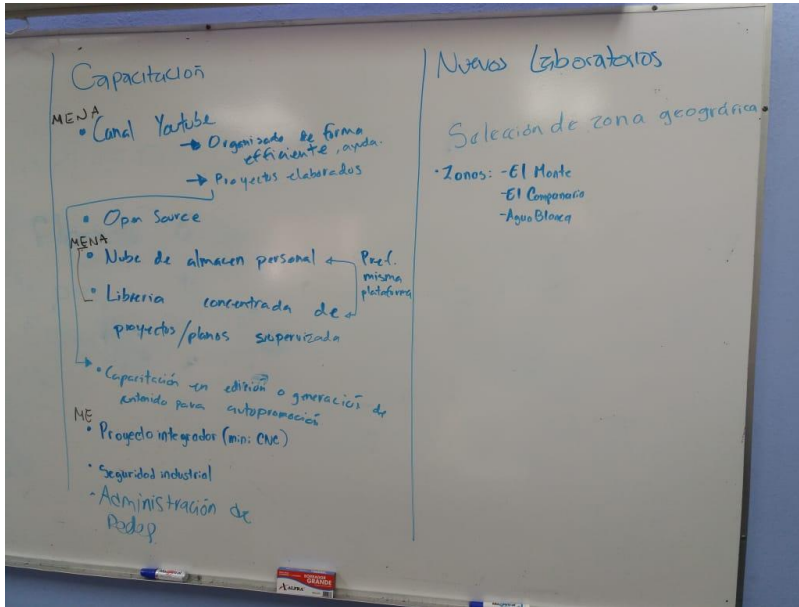 Capacitación
MENA
• Canal Youtube
→ Organizado de forma
efficiente, ayuda.
→ Proyectos elaborados
• Open Source
MENA
• Nube de almacen personal
• Libreria concentrada de
proyectos/planos supervizada
Pref.
misma
plataforma
• Capacitación en edición o generación de
contenido para autopromoción
ME
• Proyecto integrador (mini CNC)
• Seguridad industrial
- Administración de
Nuevos Laboratorios
Selección de zona geográfica.
• Zonas: - El Monte
- El Companario
- Agua Blanca
BORRADOR
GRANDE
ALFRA